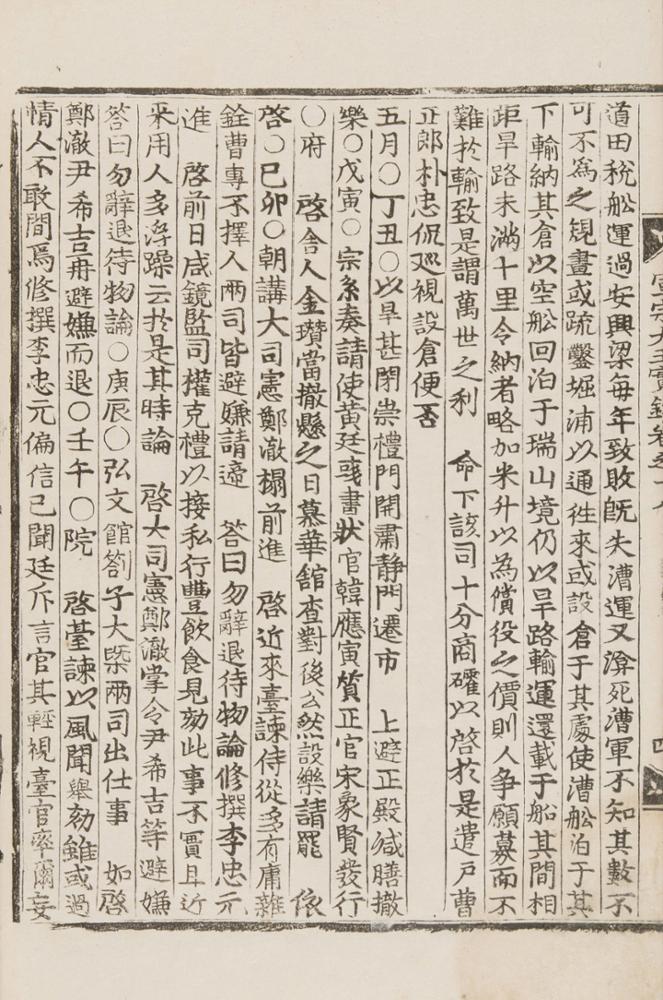 宣宗大王實錄卷之十八
四
道田稅舩運過安興梁每年致敗旣失漕運又渰死漕軍不知其數不
可不爲之規畫或疏鑿堀浦以通徃來或設倉于其處使漕舩泊于其
下輸納其倉以空舩回泊于瑞山境仍以旱路輸運還載于船其間相
距旱路未滿十里令納者略加米升以為償役之價則人爭願募而不
難於輸致是謂萬世之利 命下該司十分商確以啓於是遣戶曹
正郎朴忠侃廵視設倉便否
五月○丁丑○以旱甚閉崇禮門開肅靜門遷市 上避正殿减膳撤
樂○戊寅○宗系奏請使黃廷彧書狀官韓應寅質正官宋象賢發行
○府 啓舍人金瓚當撤懸之日慕華舘查對後公然設樂請罷 依
啓○己卯○朝講大司憲鄭澈榻前進 啓近來臺諫侍從多有庸雜
銓曹專不擇人兩司皆避嫌請遞 答曰勿辭退待物論修撰李忠元
進 啓前日咸鏡監司權克禮以接私行豐飮食見劾此事不實且近
來用人多浮躁云於是其時論 啓大司憲鄭澈掌令尹希吉等避嫌
答曰勿辭退待物論○庚辰○弘文館劄子大槩兩司出仕事 如啓
鄭澈尹希吉再避嫌而退○壬午○院 啓臺諫以風聞舉劾雖或過
情人不敢間焉修撰李忠元偏信己聞廷斥言官其輕視臺官率爾妄